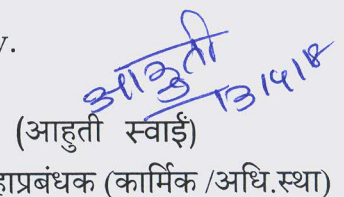 y.
आहुती
13/9/18
(आहुती स्वाईं)
हाप्रबंधक (कार्मिक /अधि.स्था)